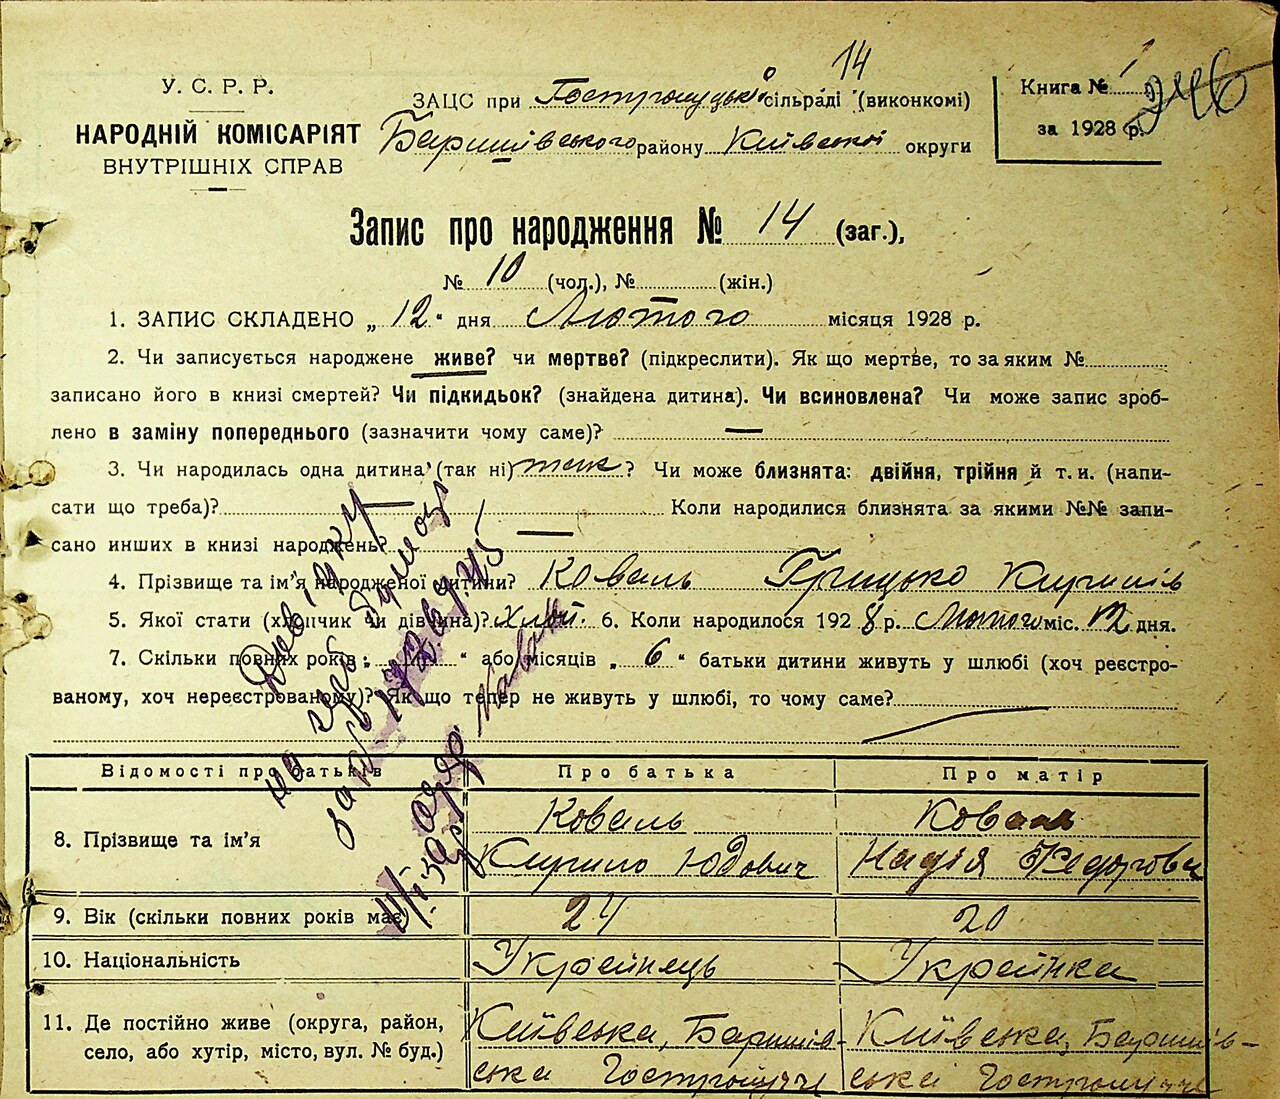 14
У. С. Р. Р.
НАРОДНІЙ КОМІСАРІЯТ
ВНУТРІШНІХ СПРАВ
ЗАЦС при Гостролуцькій сільраді (виконкомі)
Баришівського району Київської округи
Книга № 246
за 1928 р.
Запис про народження № 14 (заг.),
№ 10 (чол.), № (жін.)
1. ЗАПИС СКЛАДЕНО „ 12 " дня Лютого місяця 1928 р.
2. Чи записується народжене живе? чи мертве? (підкреслити). Як що мертве, то за яким №
записано його в книзі смертей? Чи підкидьок? (знайдена дитина). Чи всиновлена? Чи може запис зроб-
лено в заміну попереднього (зазначити чому саме)? —
3. Чи народилась одна дитина (так ні) так ? Чи може близнята: двійня, трійня й т. и. (напи-
сати що треба)? — Коли народилися близнята за якими №№ запи-
сано инших в книзі народжень? —
4. Прізвище та ім'я народженої дитини? Коваль Грицько Кирилів
5. Якої стати (хлопчик чи дівчина)? Хлоп. 6. Коли народилося 1928 р. Лютого міс. 12 дня.
7. Скільки повних років „ " або місяців „ 6 " батьки дитини живуть у шлюбі (хоч реєстро-
ваному, хоч нереєстрованому)? Як що тепер не живуть у шлюбі, то чому саме?
Відомості про батьків Про батька Про матір
8. Прізвище та ім'я Коваль Кирило Юдович Коваль Надія Федоровна
9. Вік (скільки повних років має) 24 20
10. Національність Українець Українка
11. Де постійно живе (округа, район, Київська, Баришів- Київська, Баришів-
село, або хутір, місто, вул. № буд.) ська Гостролуччє ської Гостролуччє